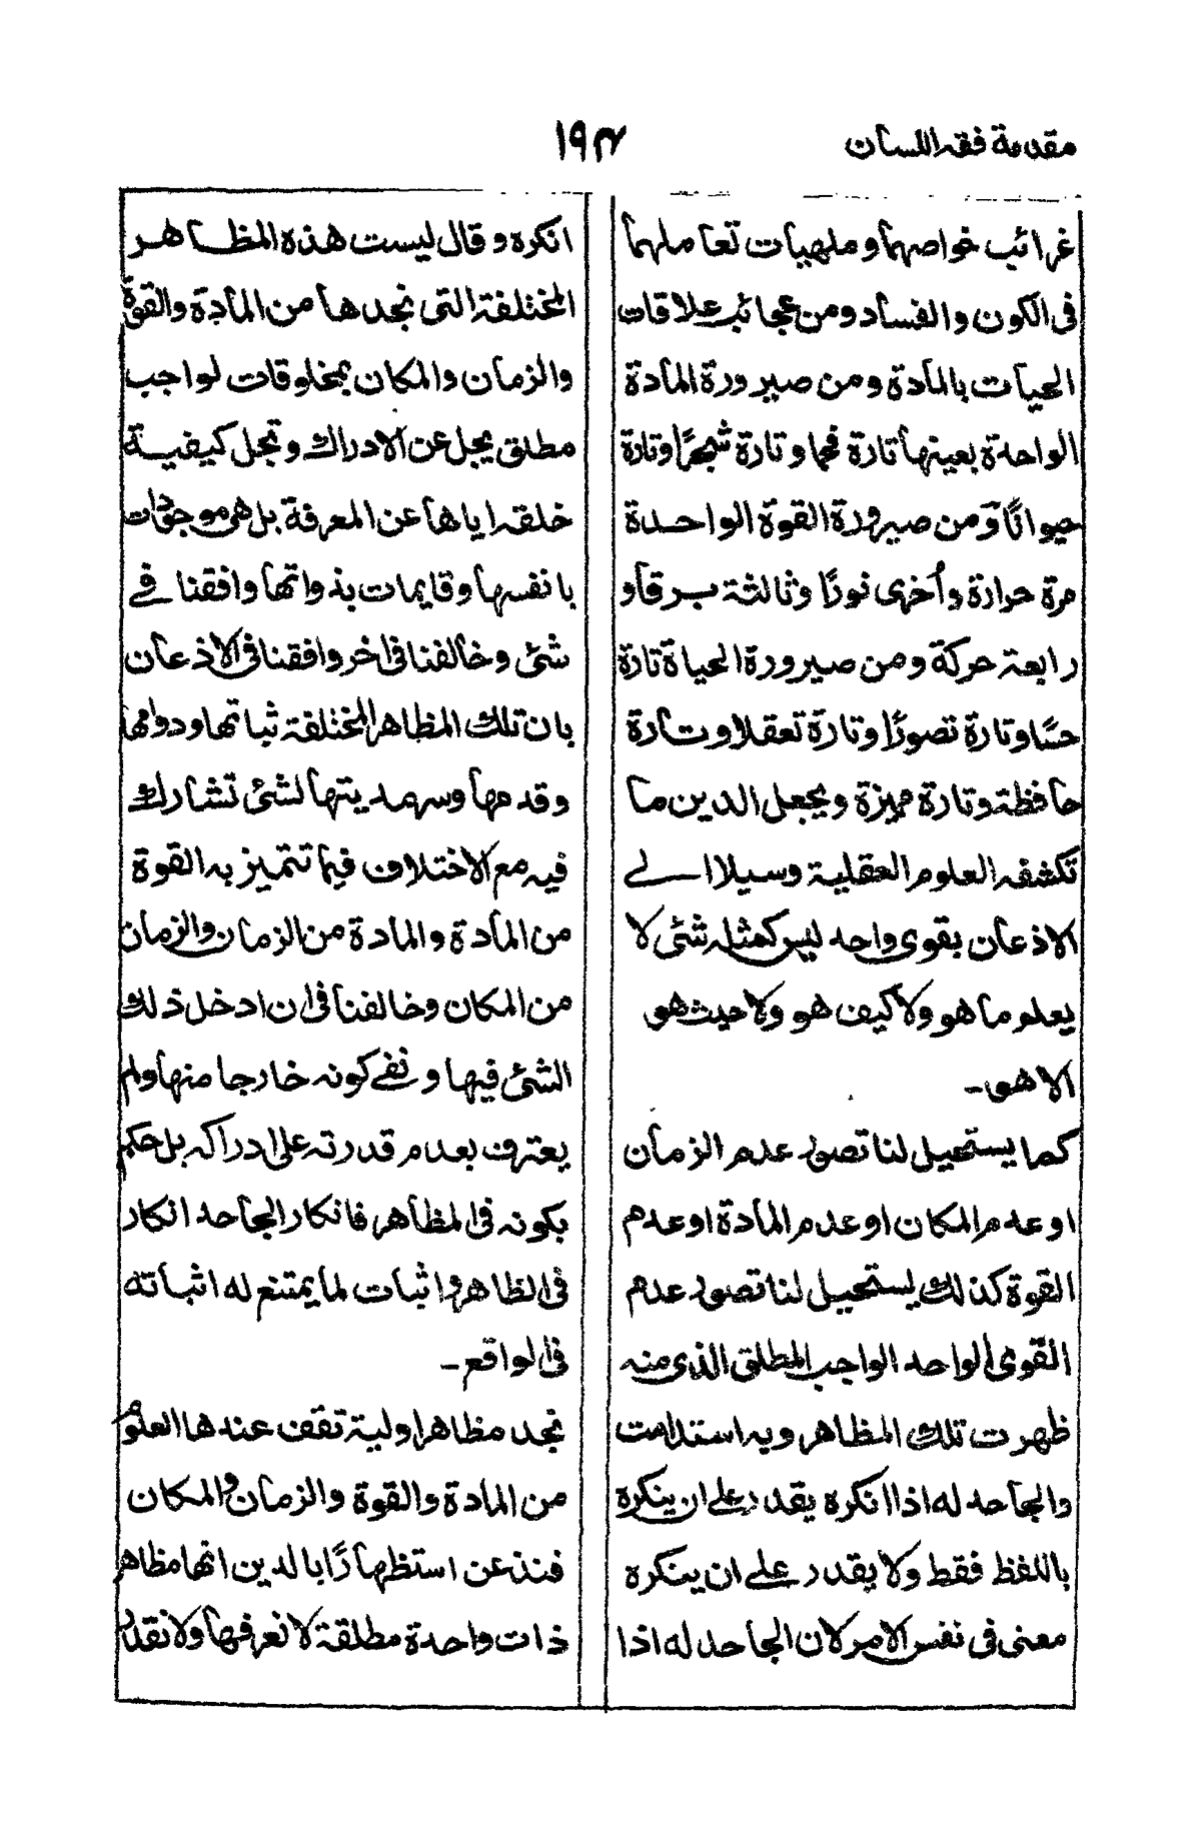 مقدمة فقه اللسان
١٩٣
غرائب خواصهما وملهيات تعاملهما
فى الكون والفساد ومن عجائب علاقات
الحيات بالمادة ومن صيرورة المادة
الواحدة بعينها تارة فحما وتارة شجرًا وتارة
حيوانًا ومن صيرورة القوة الواحدة
مرة حرارة وأخرى نورًا وثالثة برقا و
رابعة حركة ومن صيرورة الحياة تارة
حسًا وتارة تصورًا وتارة تعقلا وتارة
حافظة وتارة مميزة ويجعل الدين ما
تكشفه العلوم العقلية وسيلا الے
الاذعان بقوى واحد ليس كمثله شئى لا
يعلم ما هو ولا كيف هو ولا حيث هو
الا هو۔
كما يستحيل لنا تصور عدم الزمان
او عدم المكان او عدم المادة او عدم
القوة كذلك يستحيل لنا تصور عدم
القوى الواحد الواجب المطلق الذى منه
ظهرت تلك المظاهر وبه استدامت
والجاحد له اذا انكره يقدر على ان ينكره
باللفظ فقط ولا يقدر على ان ينكره
معنى فى نفس الامر لان الجاحد له اذا
انكره وقال ليست هذه المظاهر
المختلفة التى نجدها من المادة والقوة
والزمان والمكان بمخلوقات لواجب
مطلق يجل عن الادراك وتجل كيفية
خلقه اياها عن المعرفة بل هى موجودات
بانفسها وقايمات بذواتها وافقنا فے
شئى وخالفنا فى اخر وافقنا فى الاذعان
بان تلك المظاهر المختلفة ثباتها ودوامها
وقدمها وسرمديتها لشئى تشارك
فيه مع الاختلاف فيما تتميز به القوة
من المادة والمادة من الزمان والزمان
من المكان وخالفنا فى ان ادخل ذلك
الشئى فيها ونفے كونه خارجا منها ولم
يعترف بعدم قدرته على ادراكه بل حكم
بكونه فى المظاهر فانكار الجاحد انكار
فى الظاهر واثبات لما يمتنع له اثباته
فى الواقع۔
نجد مظاهر اولية تقف عندها العلوم
من المادة والقوة والزمان والمكان
فنذعن استظهارًا بالدين انها مظاهر
ذات واحدة مطلقة لا نعرفها ولا نقدر